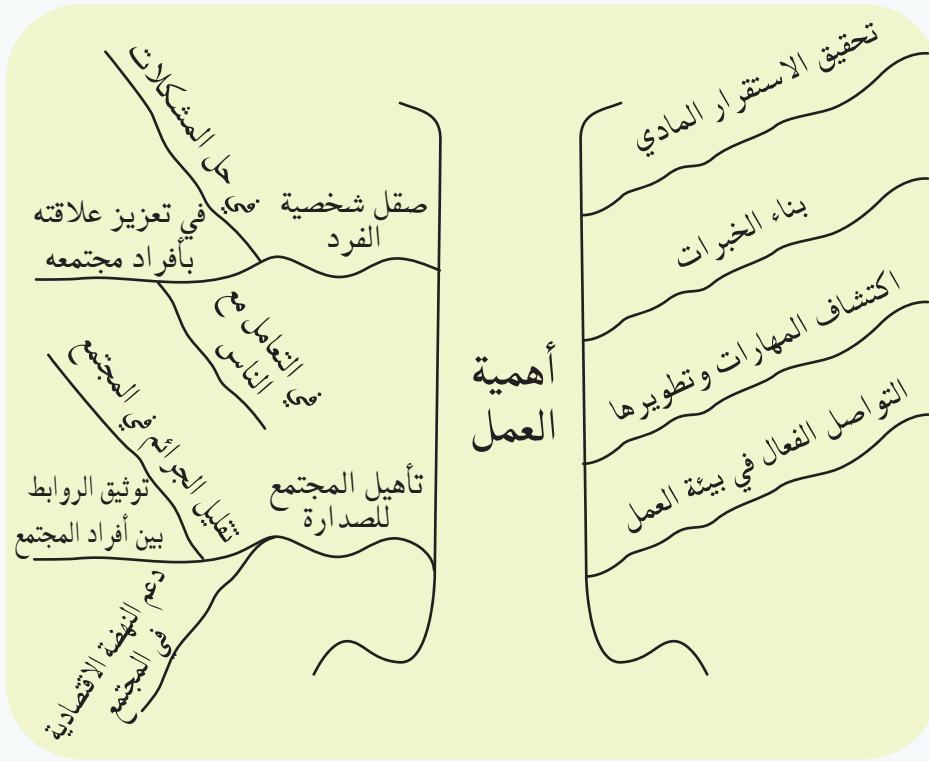 أهمية
العمل
تحقيق الاستقرار المادي
بناء الخبرات
اكتشاف المهارات وتطويرها
التواصل الفعال في بيئة العمل
صقل شخصية
الفرد
في حل المشكلات
في تعزيز علاقته
بأفراد مجتمعه
في التعامل مع
الناس
تأهيل المجتمع
للصدارة
تقليل الجرائم في المجتمع
توثيق الروابط
بين أفراد المجتمع
دعم النهضة الاقتصادية
في المجتمع